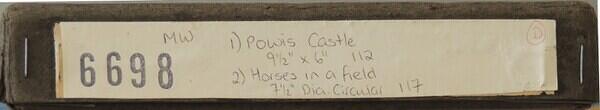 MW
6698
1) Powis Castle
9½" x 6" 112
2) Horses in a field
7½" Dia. Circular 117
D